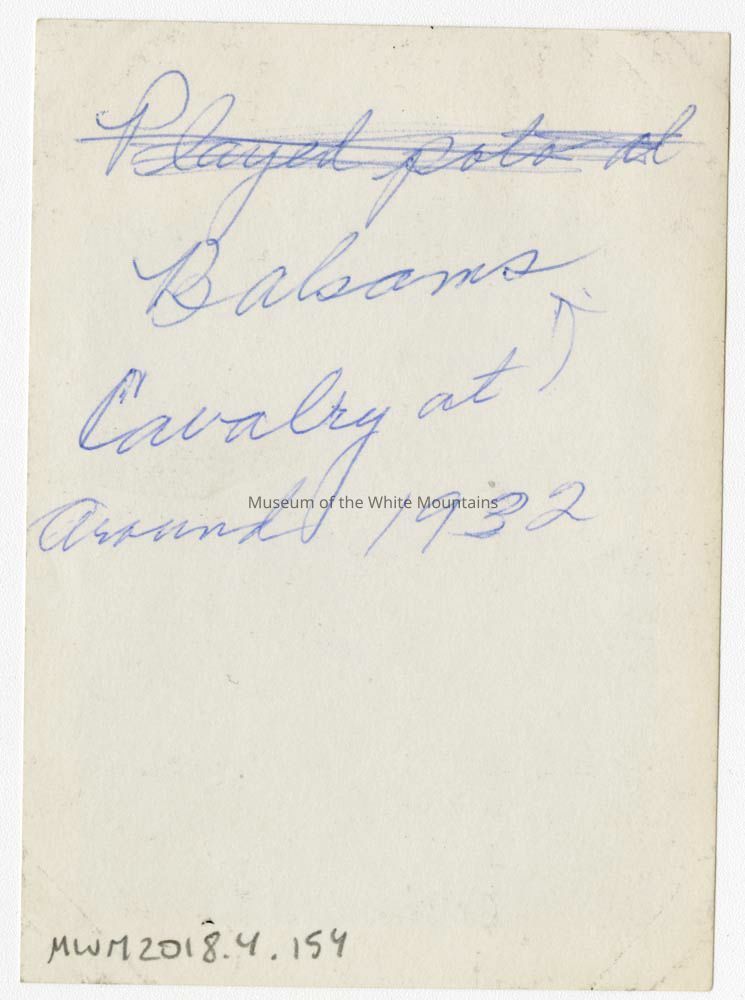 Played polo at
Balsams
Cavalry at
around 1932
Museum of the White Mountains
MWM2018.4.154